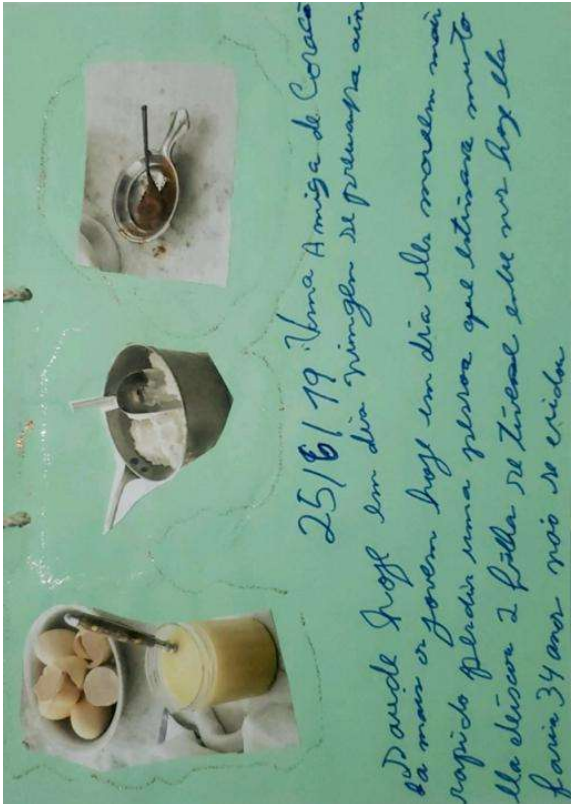 25/6/19 Uma Amiga de Coraçã
Sauide hoje em dia ningen se preucupa ain
da mais os jovem hoje em dia eles morrem mais
rapido perdir uma pessoa que estimava muto
ella deiscou 2 filha se tivese entre nos hoje ella
faria 34 anos não se cuidou